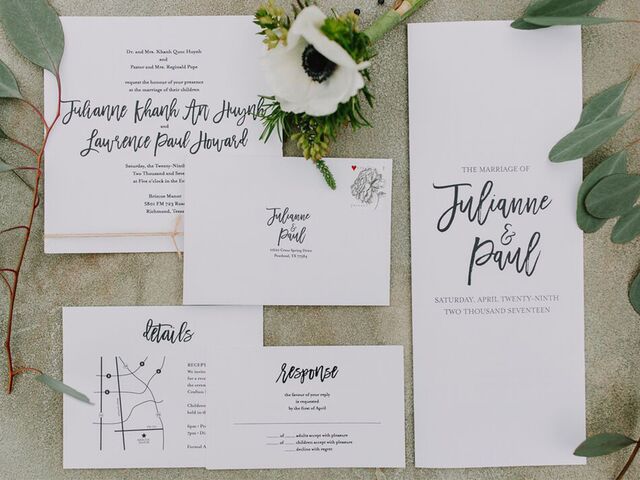 Dr. and Mrs. Khanh Quoc Huynh
and
Pastor and Mrs. Reginald Pope
request the honour of your presence
at the marriage of their children
Julianne Khanh An Huynh
and
Lawrence Paul Howard
Saturday, the Twenty-Ninth
Two Thousand and Seventeen
at Five o'clock in the
Briscoe Manor
5801 FM 723 Road
Richmond, Texas
Julianne
&
Paul
Pearland, TX 77584
THE MARRIAGE OF
Julianne
&
Paul
SATURDAY, APRIL TWENTY-NINTH
TWO THOUSAND SEVENTEEN
details
response
the favour of your reply
is requested
by the first of April
___ of ___ adults accept with pleasure
___ of ___ children accept with pleasure
___ decline with regret